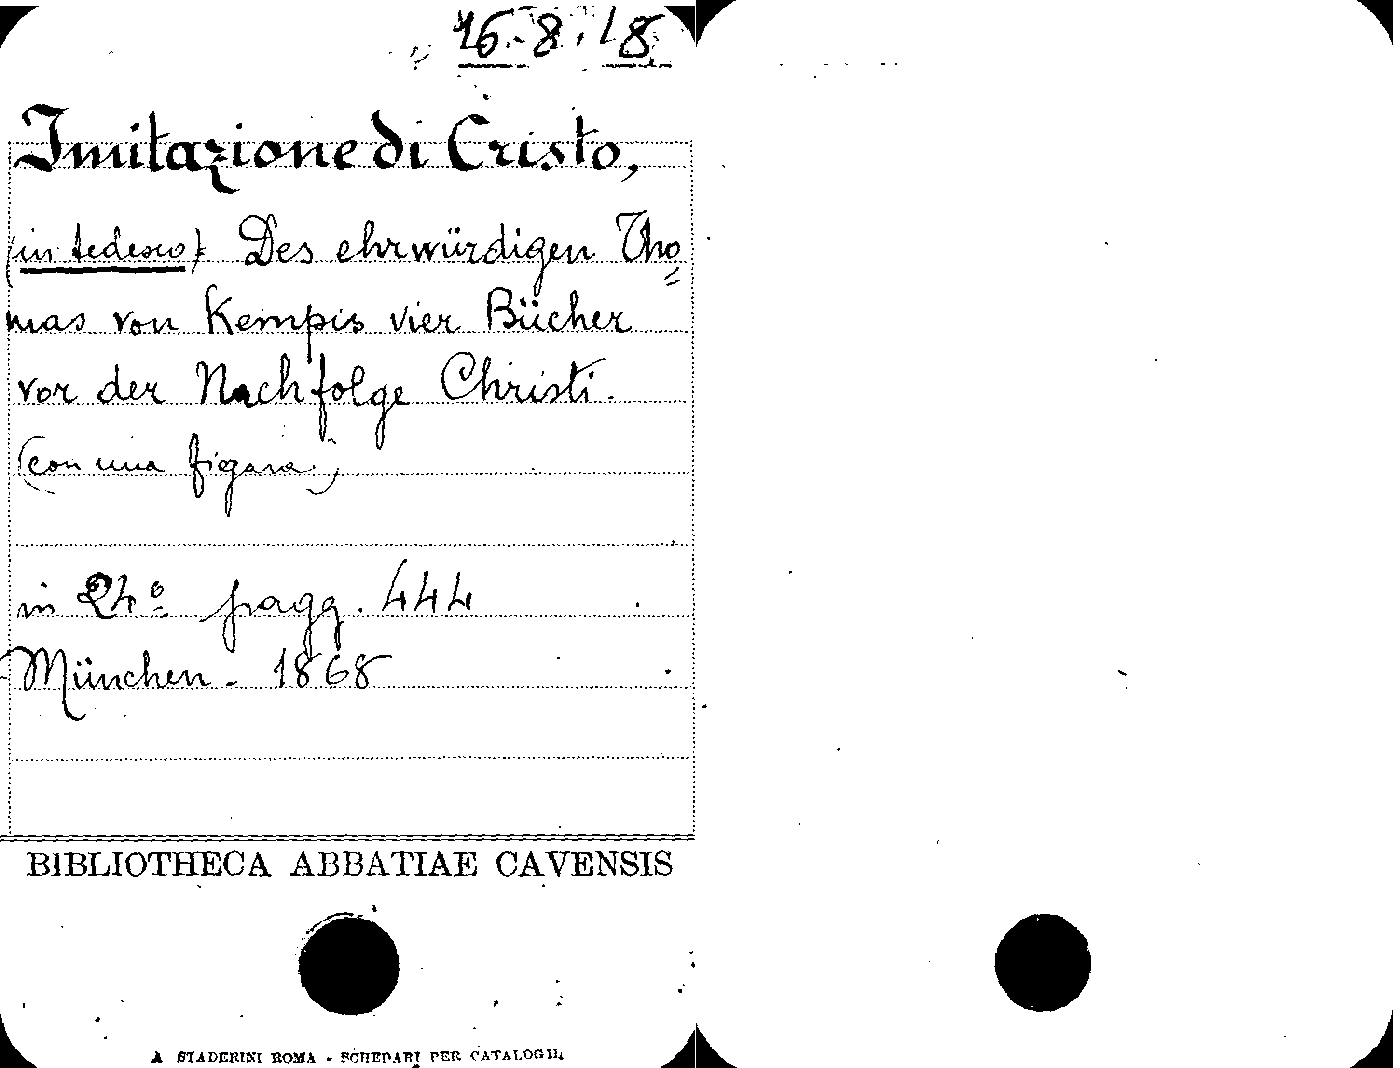 16.8.18
Imitazione di Cristo,
(in tedesco): Des ehrwürdigen Tho=
mas von Kempis vier Bücher
vor der Nachfolge Christi.
(con una figura)
in 24º pagg. 444
München - 1868
BIBLIOTHECA ABBATIAE CAVENSIS
A STADERINI ROMA - SCHEDARI PER CATALOGHI